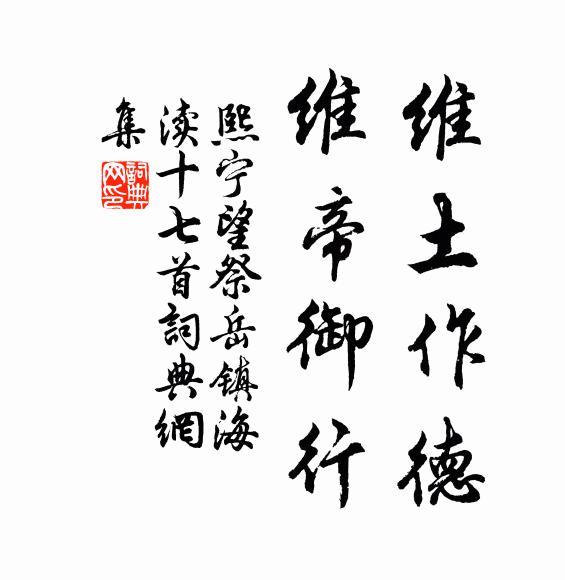 维土作德
维帝御行
熙宁望祭岳镇海
渎十七首詞典網
集
詞典網印